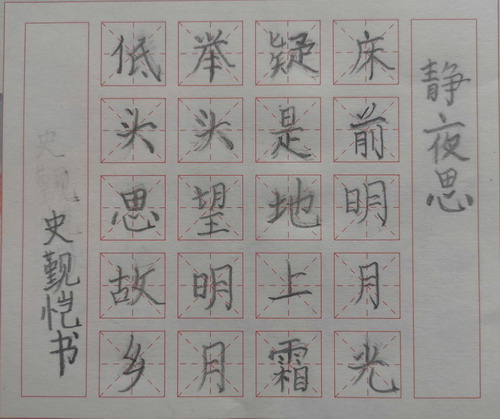 静夜思
床前明月光
疑是地上霜
举头望明月
低头思故乡
史觐恺书
史觐